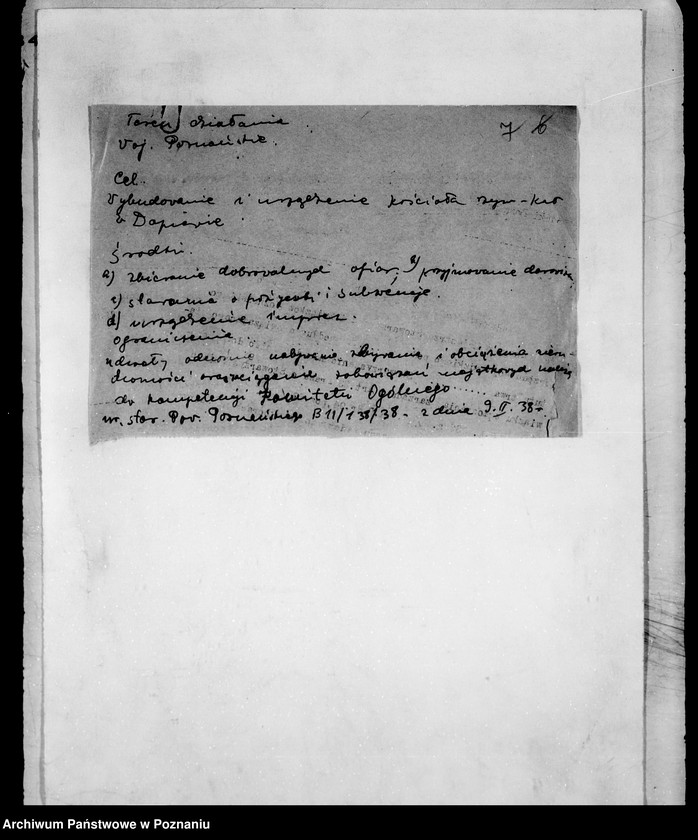 Teren działania
Woj. Poznańskie.
7 6
Cel.
Wybudowanie i urządzenie kościoła rzym-kat
w Dopiewie
Środki.
a) zbieranie dobrowolnych ofiar. b) przyjmowanie darowizn
c) starania o pożyczki i subwencje.
d) urządzenie imprez.
ograniczenie
uchwały odnośnie nabywania, zbywania i obciążenia nieru-
chomości oraz zaciągania zobowiązań majątkowych należą
do kompetencji Komitetu Ogólnego
nr. star. Pow. Poznańskiego B 11/138/38 - z dnia 9. II. 38 -
Archiwum Państwowe w Poznaniu